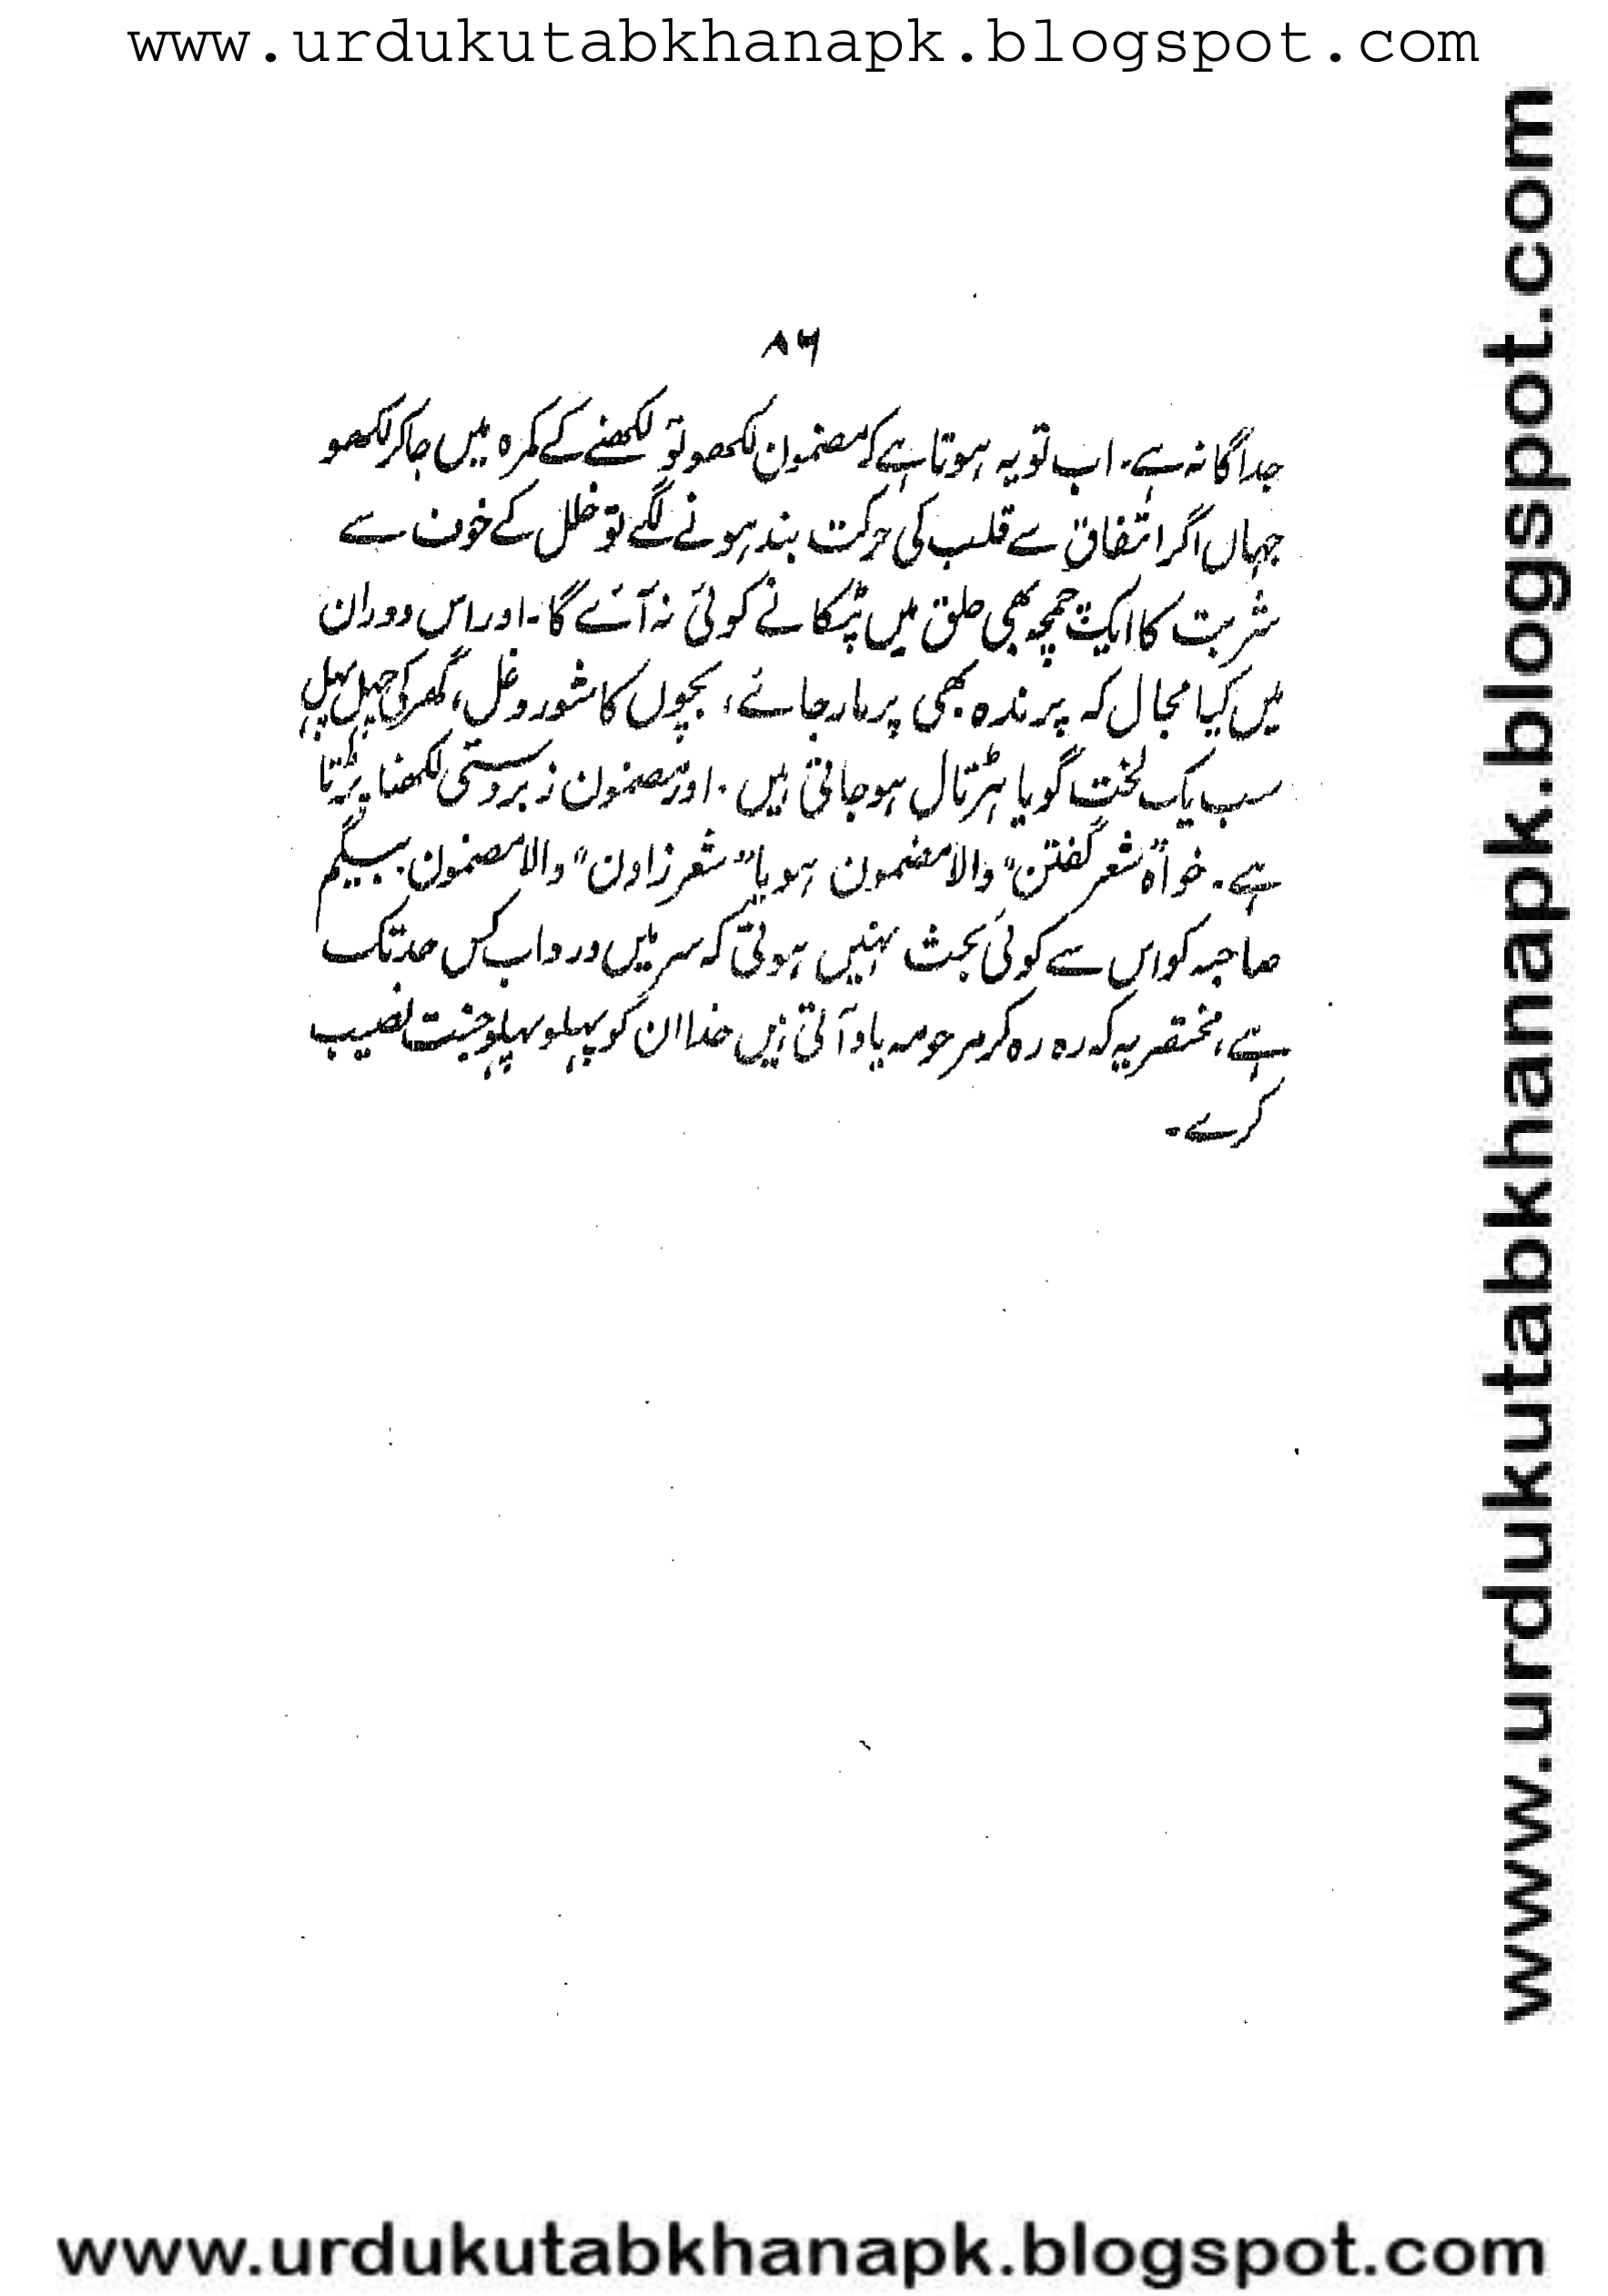 www.urdukutabkhanapk.blogspot.com
۸۶
جداگانہ ہے. اب تو یہ ہوتا ہے کہ مضمون لکھو تو لکھنے کے کمرہ میں جاکر لکھو
جہاں اگر اتفاق سے قلب کی حرکت بند ہونے لگے تو خلل کے خوف سے
شربت کا ایک چمچہ بھی حلق میں ٹپکانے کوئی نہ آئے گا۔ اور اس دوران
میں کیا مجال کہ پرندہ بھی پر مار جائے، بچوں کا شور و غل، گھر کی چہل پہل
سب یک لخت گویا ہڑتال ہو جاتی ہیں. اور مضمون زبردستی لکھنا پڑتا
ہے. خواہ "شعر گفتن" والا مضمون ہو یا "شعر زاون" والا مضمون بیگم
صاحبہ کو اس سے کوئی بحث نہیں ہوتی کہ سر میں درد اب کس حد تک
ہے، مختصر یہ کہ رہ رہ کر مرحومہ یاد آتی ہیں خدا ان کو پہلو بہ پہلو جنت نصیب
کرے۔
www.urdukutabkhanapk.blogspot.com
www.urdukutabkhanapk.blogspot.com